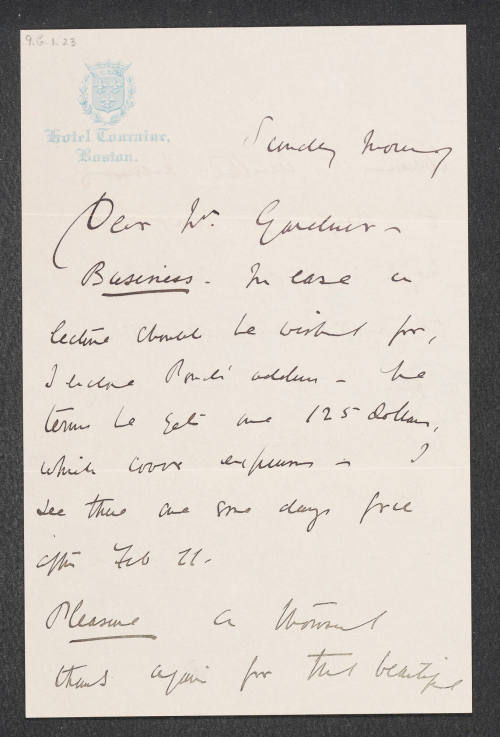 9.G.1.23
Hotel Touraine,
Boston.
Sunday Morning
Dear Mrs. Gardner –
Business. In case a
lecture should be wished for,
I enclose address – the
terms he gets are 125 dollars,
which cover expenses – I
see there are some days free
after Feb 11.
Pleasure a thousand
thanks again for that beautiful